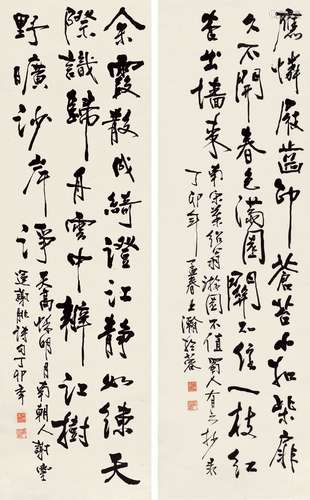 應憐屐齒印蒼苔小扣柴扉
久不開春色滿園關不住一枝紅
杏出墻来 南宋葉紹翁游園不值 蜀人有六抄录
丁卯年 孟春上澣
余霞散成綺澄江静如練天
際識歸舟雲中辨江樹
野曠沙岸淨 天高秋明月 南朝人謝靈
運謝朓詩句丁卯年